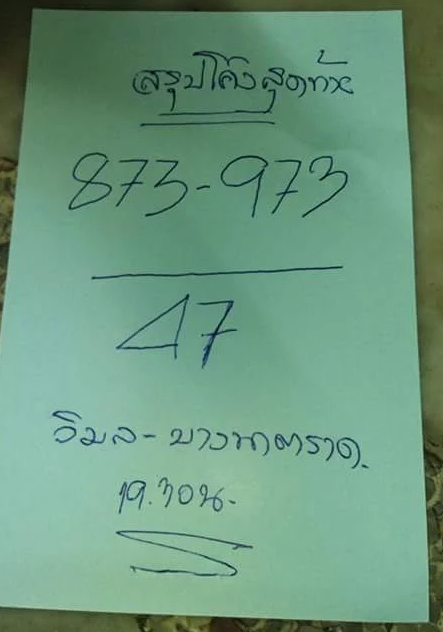 สรุปโค้งสุดท้าย
873-973
47
วิมล-บางนาตราด.
19.30น.